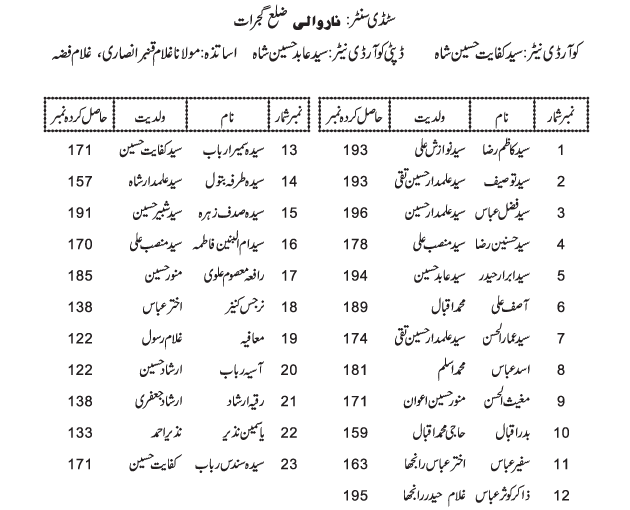 سٹڈی سنٹر: ناروالی ضلع گجرات
کوآرڈی نیٹر: سید کفایت حسین شاہ ڈپٹی کوآرڈی نیٹر: سید عابد حسین شاہ اساتذہ: مولانا غلام قنبر انصاری، غلام فضہ
نمبر شمار نام ولدیت حاصل کردہ نمبر
1 سید کاظم رضا سید نوازش علی 193
2 سید توصیف سید علمدار حسین تقی 193
3 سید فضل عباس سید علمدار حسین 196
4 سید حسنین رضا سید منصب علی 178
5 سید ابرار حیدر سید عابد حسین 194
6 آصف علی محمد اقبال 189
7 سید عمار الحسن سید علمدار حسین تقی 174
8 اسد عباس محمد اسلم 181
9 مغیث الحسن منور حسین اعوان 171
10 بدر اقبال حاجی محمد اقبال 159
11 سفیر عباس اختر عباس رانجھا 163
12 ذاکر کوثر عباس غلام حیدر رانجھا 195
نمبر شمار نام ولدیت حاصل کردہ نمبر
13 سیدہ سمیرا رباب سید کفایت حسین 171
14 سیدہ طرفہ بتول سید علمدار شاہ 157
15 سیدہ صدف زہرہ سید شبیر حسین 191
16 سیدہ ام البنین فاطمہ سید منصب علی 170
17 رافعہ معصوم علوی منور حسین 185
18 نرجس کنیز اختر عباس 138
19 معافیہ غلام رسول 122
20 آسیہ رباب ارشاد حسین 122
21 رقیہ ارشاد ارشاد جعفری 138
22 یاسمین نذیر نذیر احمد 133
23 سیدہ سندس رباب کفایت حسین 171